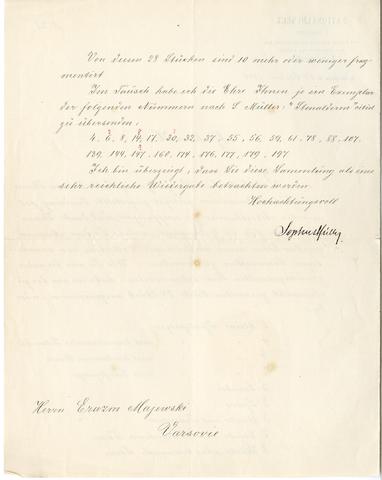 Von diesen 28 Stücken sind 10 mehr oder weniger frag-
mentirt
Im Tausch habe ich die Ehre Ihnen je ein Exemplar
der folgenden Nummern nach S. Müller: "Stenalderen"
zu übersenden:
4, 6, 8, 14, 17, 30, 32, 37, 55, 56, 59, 61, 78, 88, 107,
139, 144, 147, 160, 174, 176, 177, 179, 197
Ich bin überzeugt, dass Sie diese Sammlung als eine
sehr reichliche Wiedergabe betrachten werden
Hochachtungsvoll
Sophus Müller.
Herrn Erazm Majewski
Varsovie